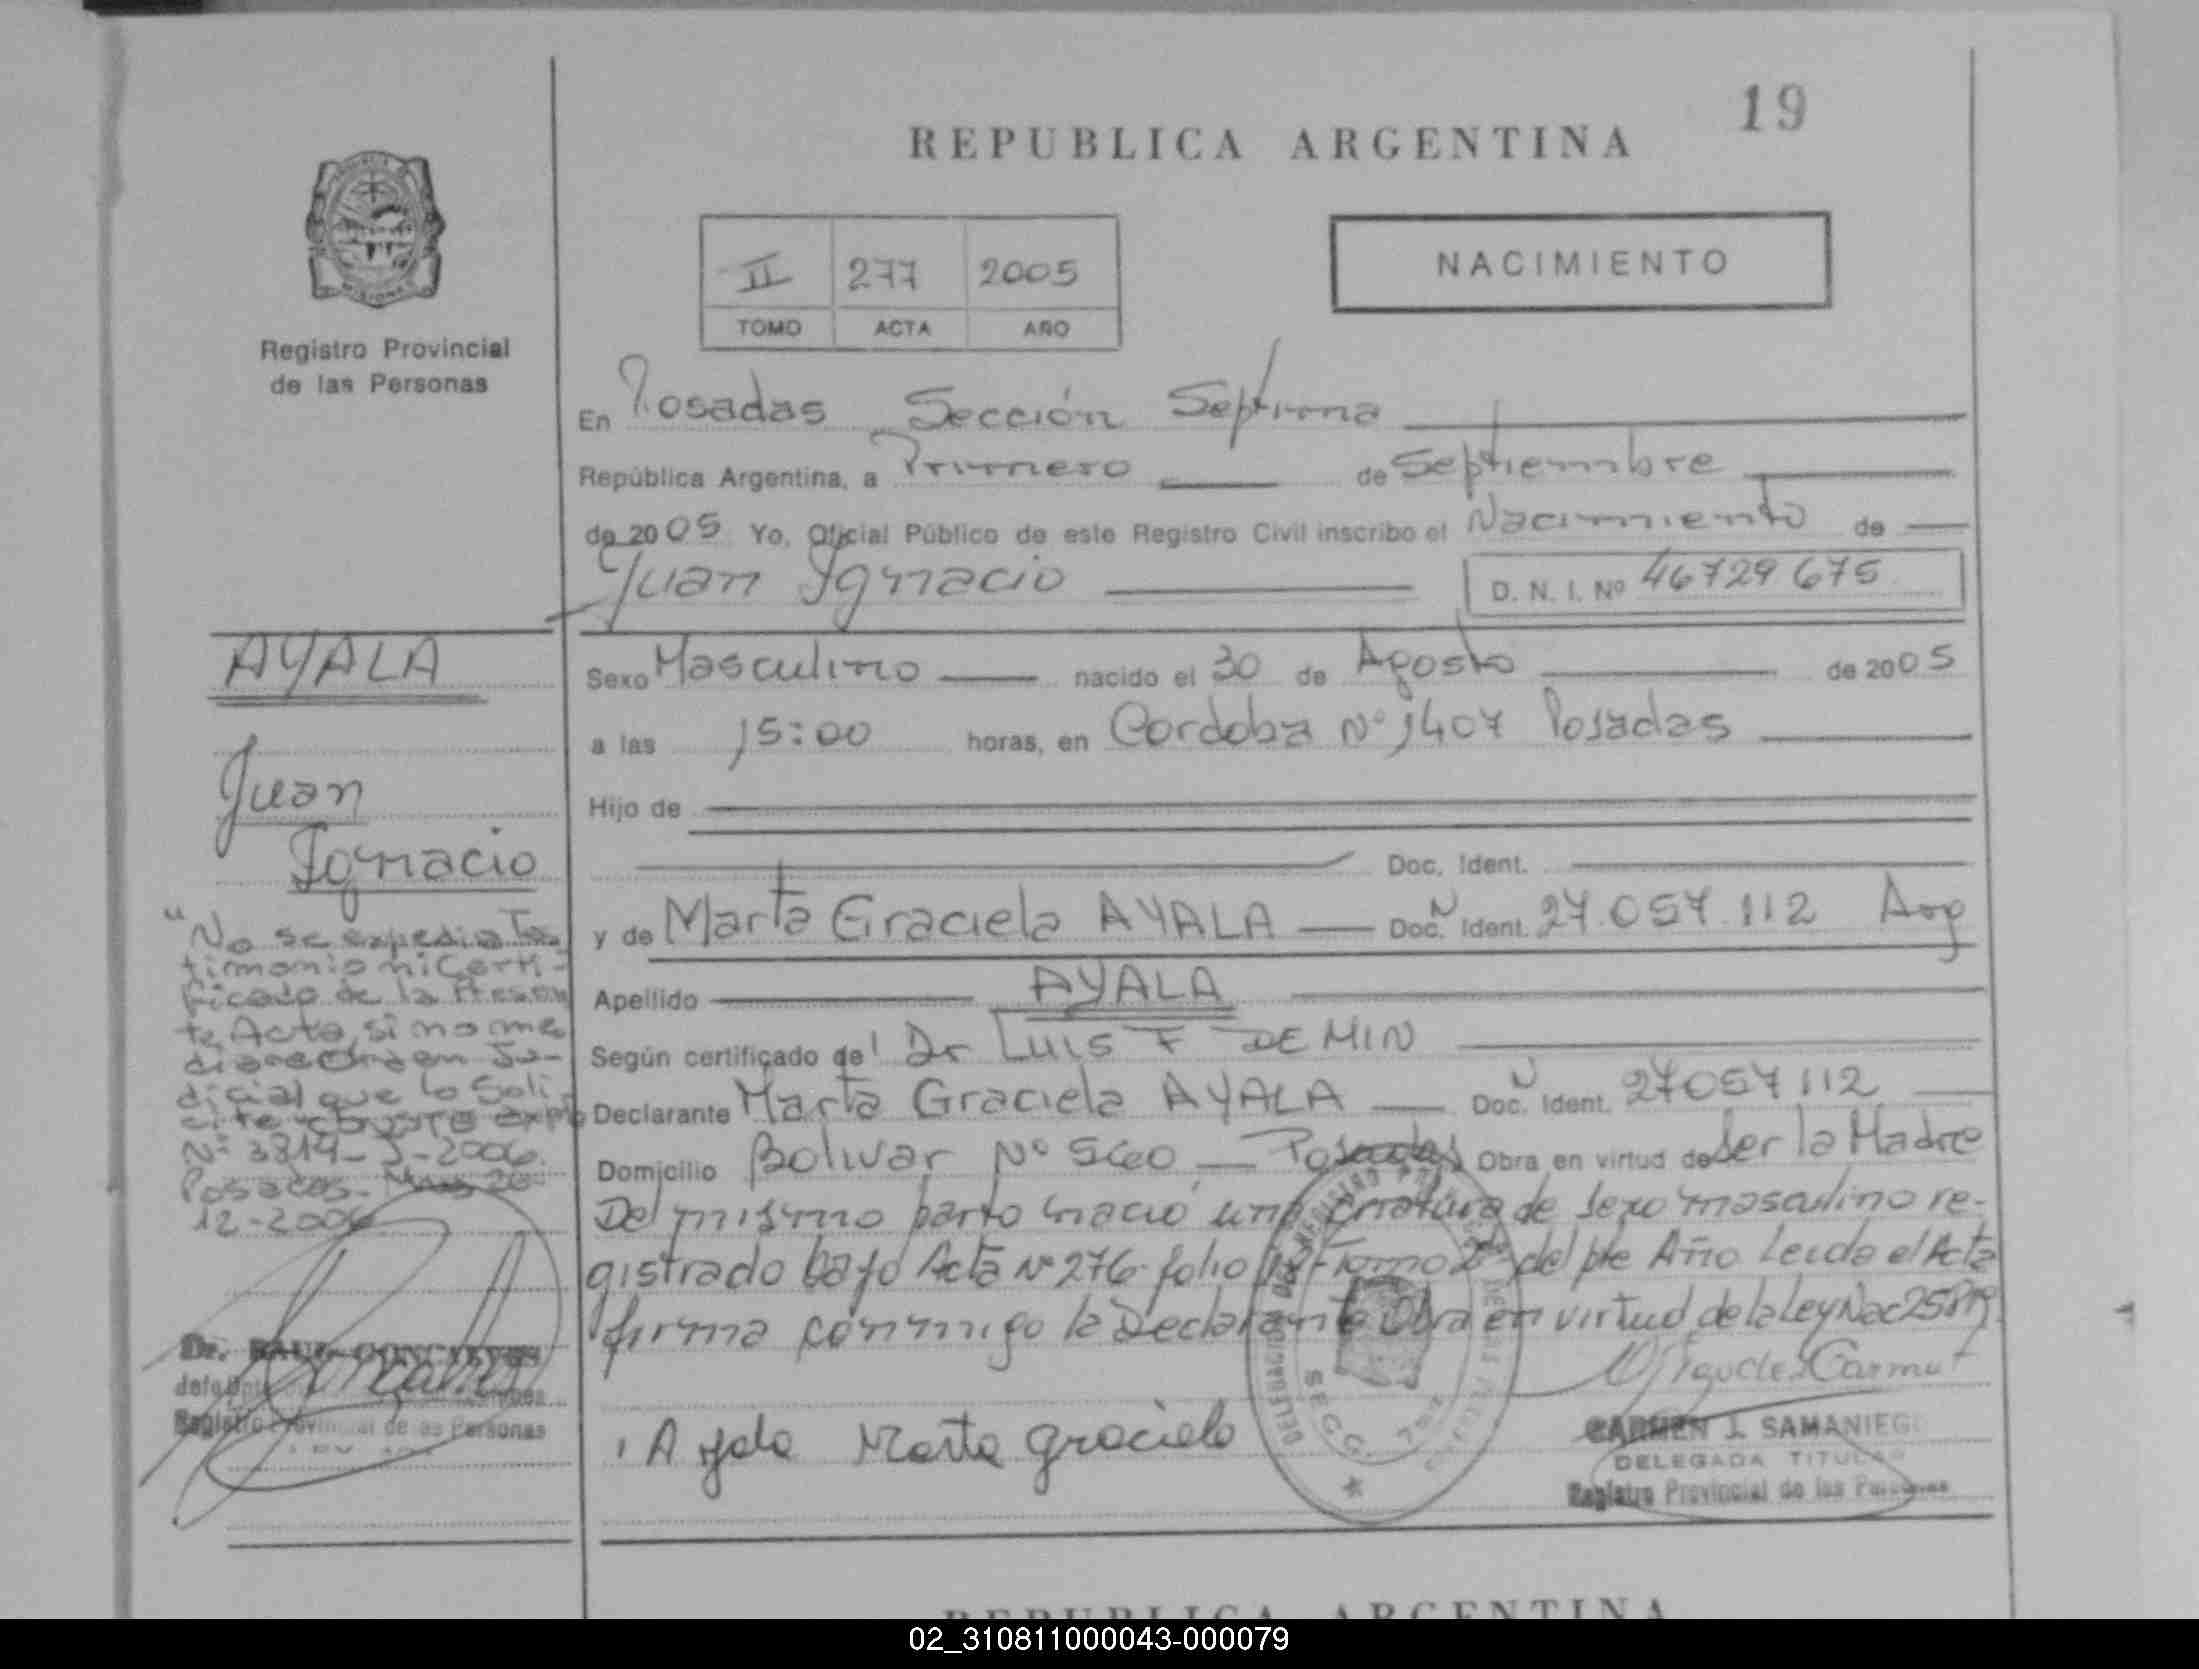 19
REPUBLICA ARGENTINA
NACIMIENTO
II 277 2005
TOMO ACTA AÑO
Registro Provincial
de las Personas
En Posadas Sección Septima
República Argentina, a Primero de Septiembre
de 2005 Yo, Oficial Público de este Registro Civil inscribo el Nacimiento de
Juan Ignacio D. N. I. Nº 46729675
AYALA
Juan
Ignacio
Sexo Masculino nacido el 30 de Agosto de 2005
a las 15:00 horas, en Cordoba Nº 1407 Posadas
Hijo de
Doc. Ident.
y de Marta Graciela AYALA Doc. N Ident. 27.057.112 Arg
Apellido AYALA
Según certificado de Dr LUIS F DE MIN
Declarante Marta Graciela AYALA Doc. N Ident. 27057112
Domicilio Bolivar Nº Posadas Obra en virtud de Ser la Madre
Del mismo parto nacio una criatura de sexo masculino re-
gistrado bajo Acta Nº 276 folio Tomo del pte Año Leida el Acta
firma conmigo la Declarante Obra en virtud de la Ley Nac
"No se expedia Tes
timonio ni Certi-
ficado de la Presen
te Acta, si no me
dia orden Ju-
dicial que lo Soli
cite
Nº 3814-J-2006.
Posadas
12-2006
Dr. RAUL
Registro Provincial de las Personas
Ayala Marta Graciela
SECC. 7ma
CARMEN J. SAMANIEGO
DELEGADA TITULAR
Registro Provincial de las Personas
REPUBLICA ARGENTINA
02_310811000043-000079